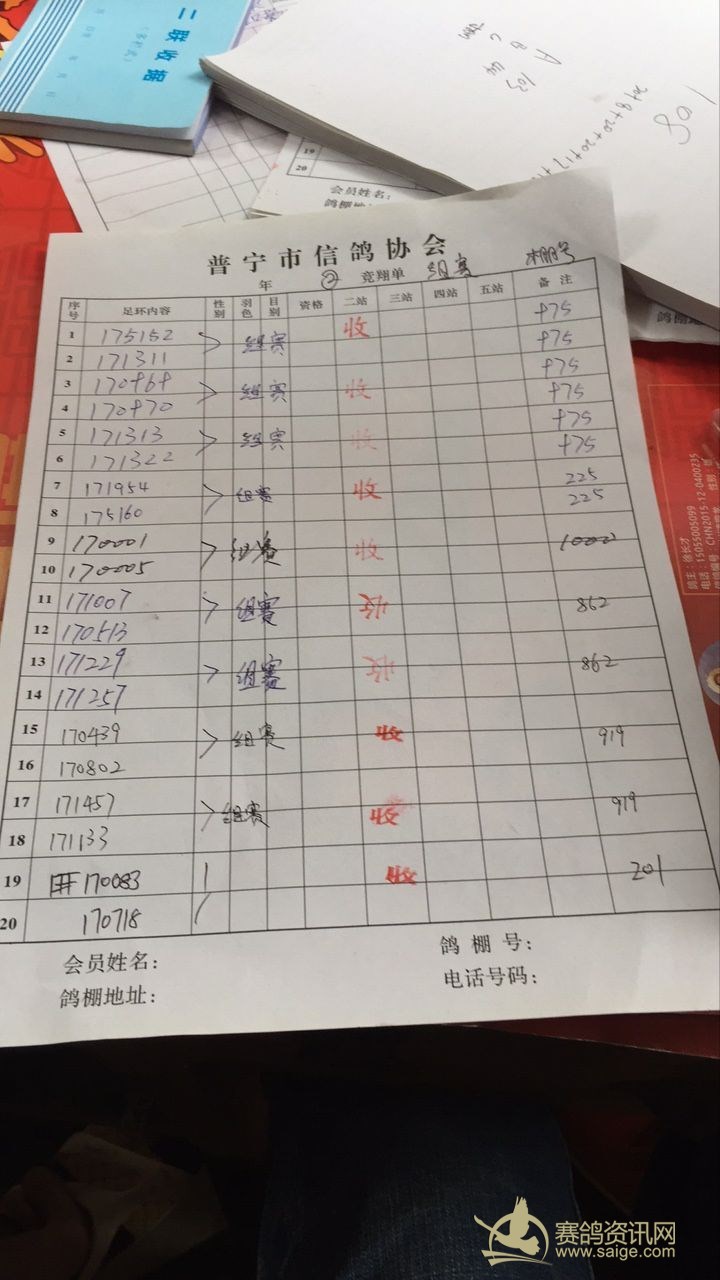 二联收据
A 103
B
C
108
19
20
会员姓名:
鸽棚地
普宁市信鸽协会
年 ② 竞翔单 组赛 棚号
序号 足环内容 性别 羽色 目别 资格 二站 三站 四站 五站 备注
1 175152 > 组赛 收 475
2 171311 475
3 170464 > 组赛 收 475
4 170470 475
5 171313 > 组赛 收 475
6 171322 475
7 171954 > 组赛 收 225
8 175160 225
9 170001 > 组赛 收 1000
10 170005
11 171007 > 组赛 收 862
12 170513
13 171229 > 组赛 收 862
14 171257
15 170439 > 组赛 收 919
16 170802
17 171457 > 组赛 收 919
18 171133
19 170083 收 201
20 170718
会员姓名: 鸽棚号:
鸽棚地址: 电话号码:
鸽主:徐长才
电话:15055005099
CHN2015-12-0400235
赛鸽资讯网
www.saige.com